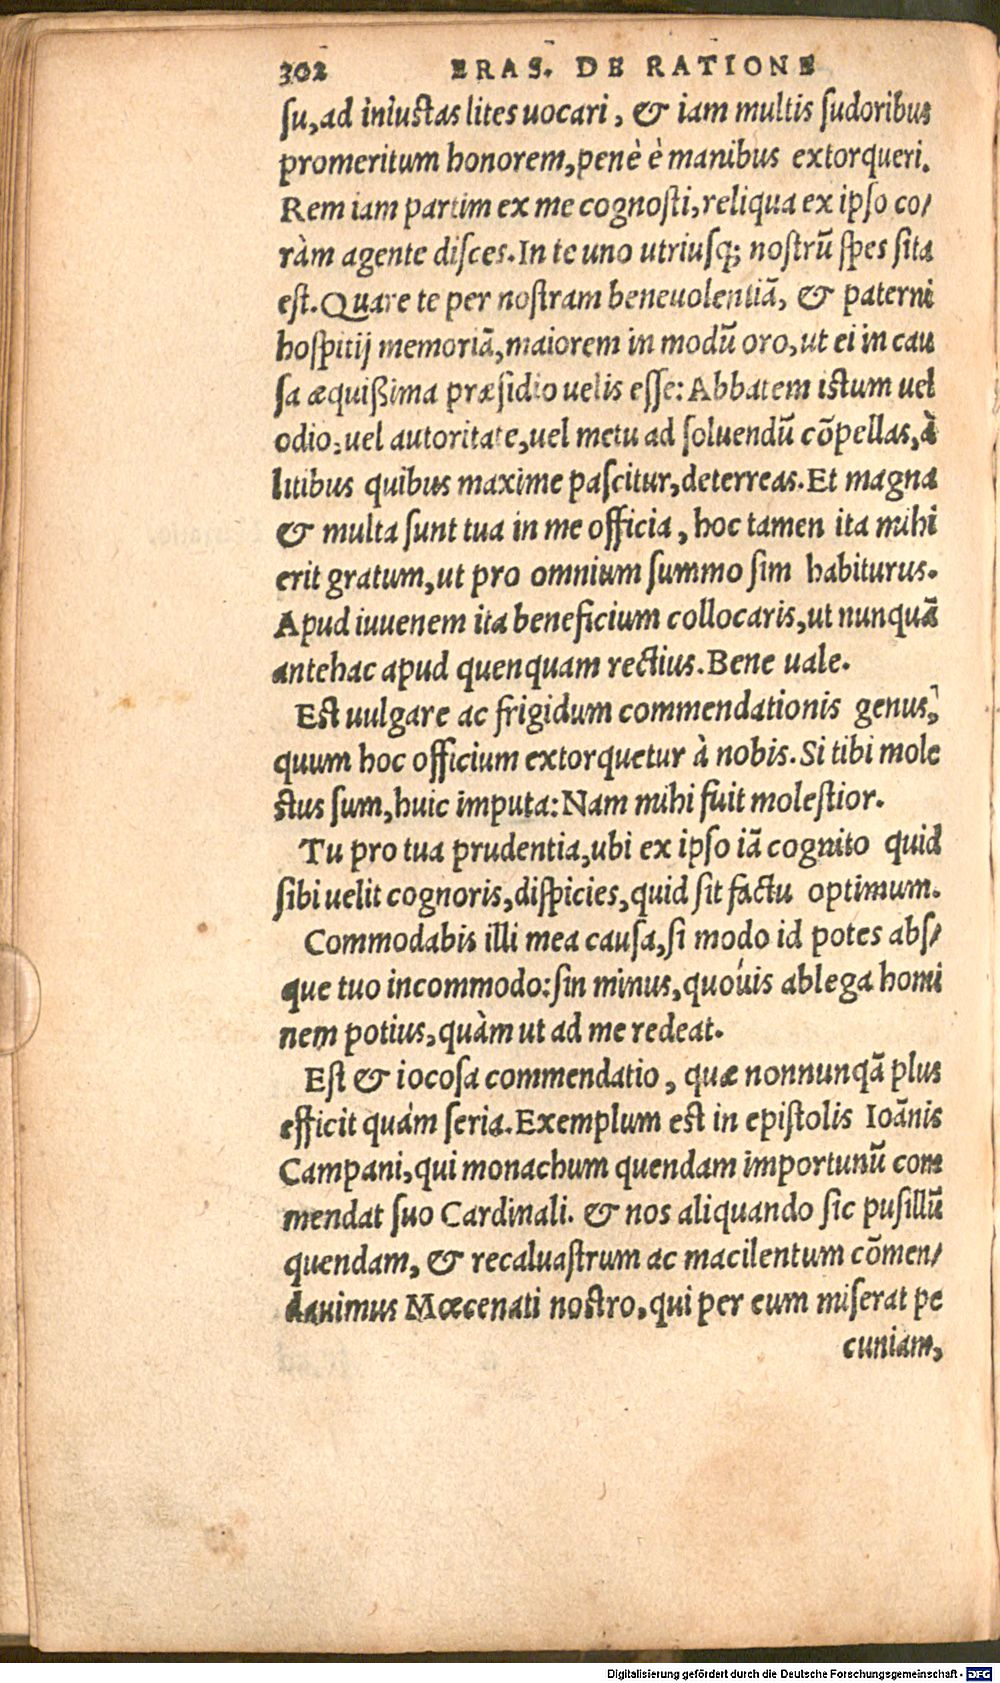 302 ERAS. DE RATIONE
ſu, ad iniustas lites uocari, & iam multis ſudoribus
promeritum honorem, penè è manibus extorqueri.
Rem iam partim ex me cognoſti, reliqua ex ipſo co/
ràm agente diſces. In te uno utriuſq; noſtrū ſpes ſita
eſt. Quare te per noſtram beneuolentiā, & paterni
hoſpitij memoriā, maiorem in modū oro, ut ei in cau
ſa æquißima præſidio uelis eſſe: Abbatem istum uel
odio, uel autoritate, uel metu ad ſoluendū cōpellas, à
litibus quibus maxime paſcitur, deterreas. Et magna
& multa ſunt tua in me officia, hoc tamen ita mihi
erit gratum, ut pro omnium ſummo ſim habiturus.
Apud iuuenem ita beneficium collocaris, ut nunquā
antehac apud quenquam rectius. Bene uale.
Est uulgare ac frigidum commendationis genus,
quum hoc officium extorquetur à nobis. Si tibi mole
stus ſum, huic imputa: Nam mihi fuit moleſtior.
Tu pro tua prudentia, ubi ex ipſo iā cognito quid
ſibi uelit cognoris, diſpicies, quid ſit factu optimum.
Commodabis illi mea cauſa, ſi modo id potes abſ/
que tuo incommodo: ſin minus, quouis ablega homi
nem potius, quàm ut ad me redeat.
Eſt & iocoſa commendatio, quæ nonnunqā plus
efficit quàm ſeria. Exemplum est in epiſtolis Ioānis
Campani, qui monachum quendam importunū com
mendat ſuo Cardinali. & nos aliquando ſic puſillū
quendam, & recaluaſtrum ac macilentum cōmen/
dauimus Mœcenati nostro, qui per eum miſerat pe
cuniam,
Digitalisierung gefördert durch die Deutsche Forschungsgemeinschaft - DFG